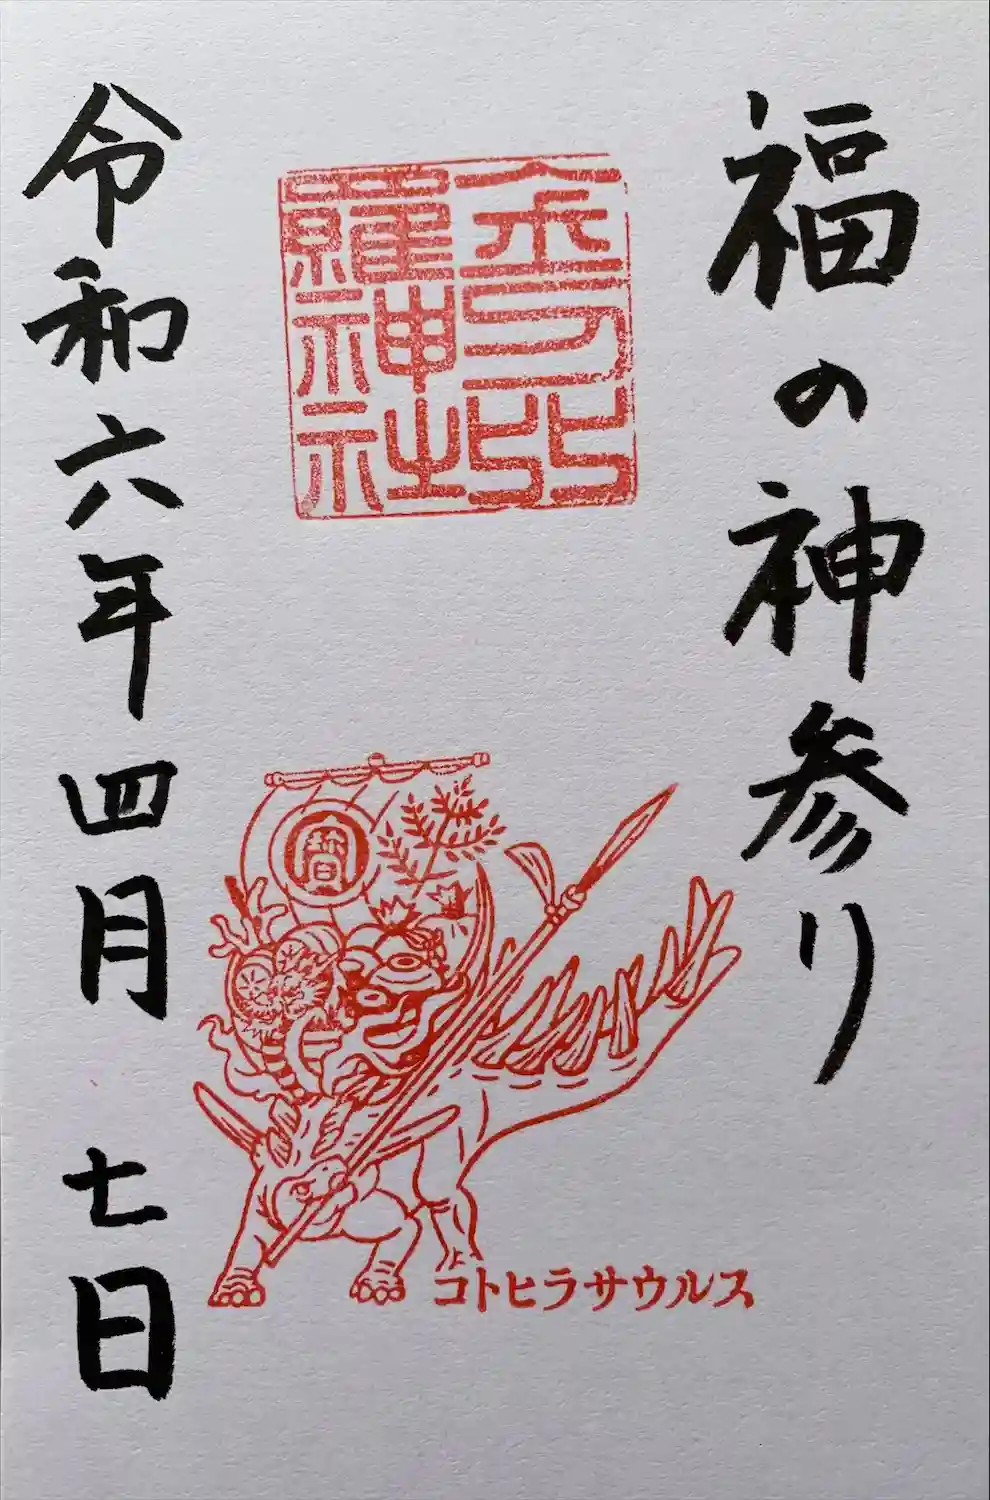 福の神参り
金刀比
羅神社
寳
コトヒラサウルス
令和六年四月七日